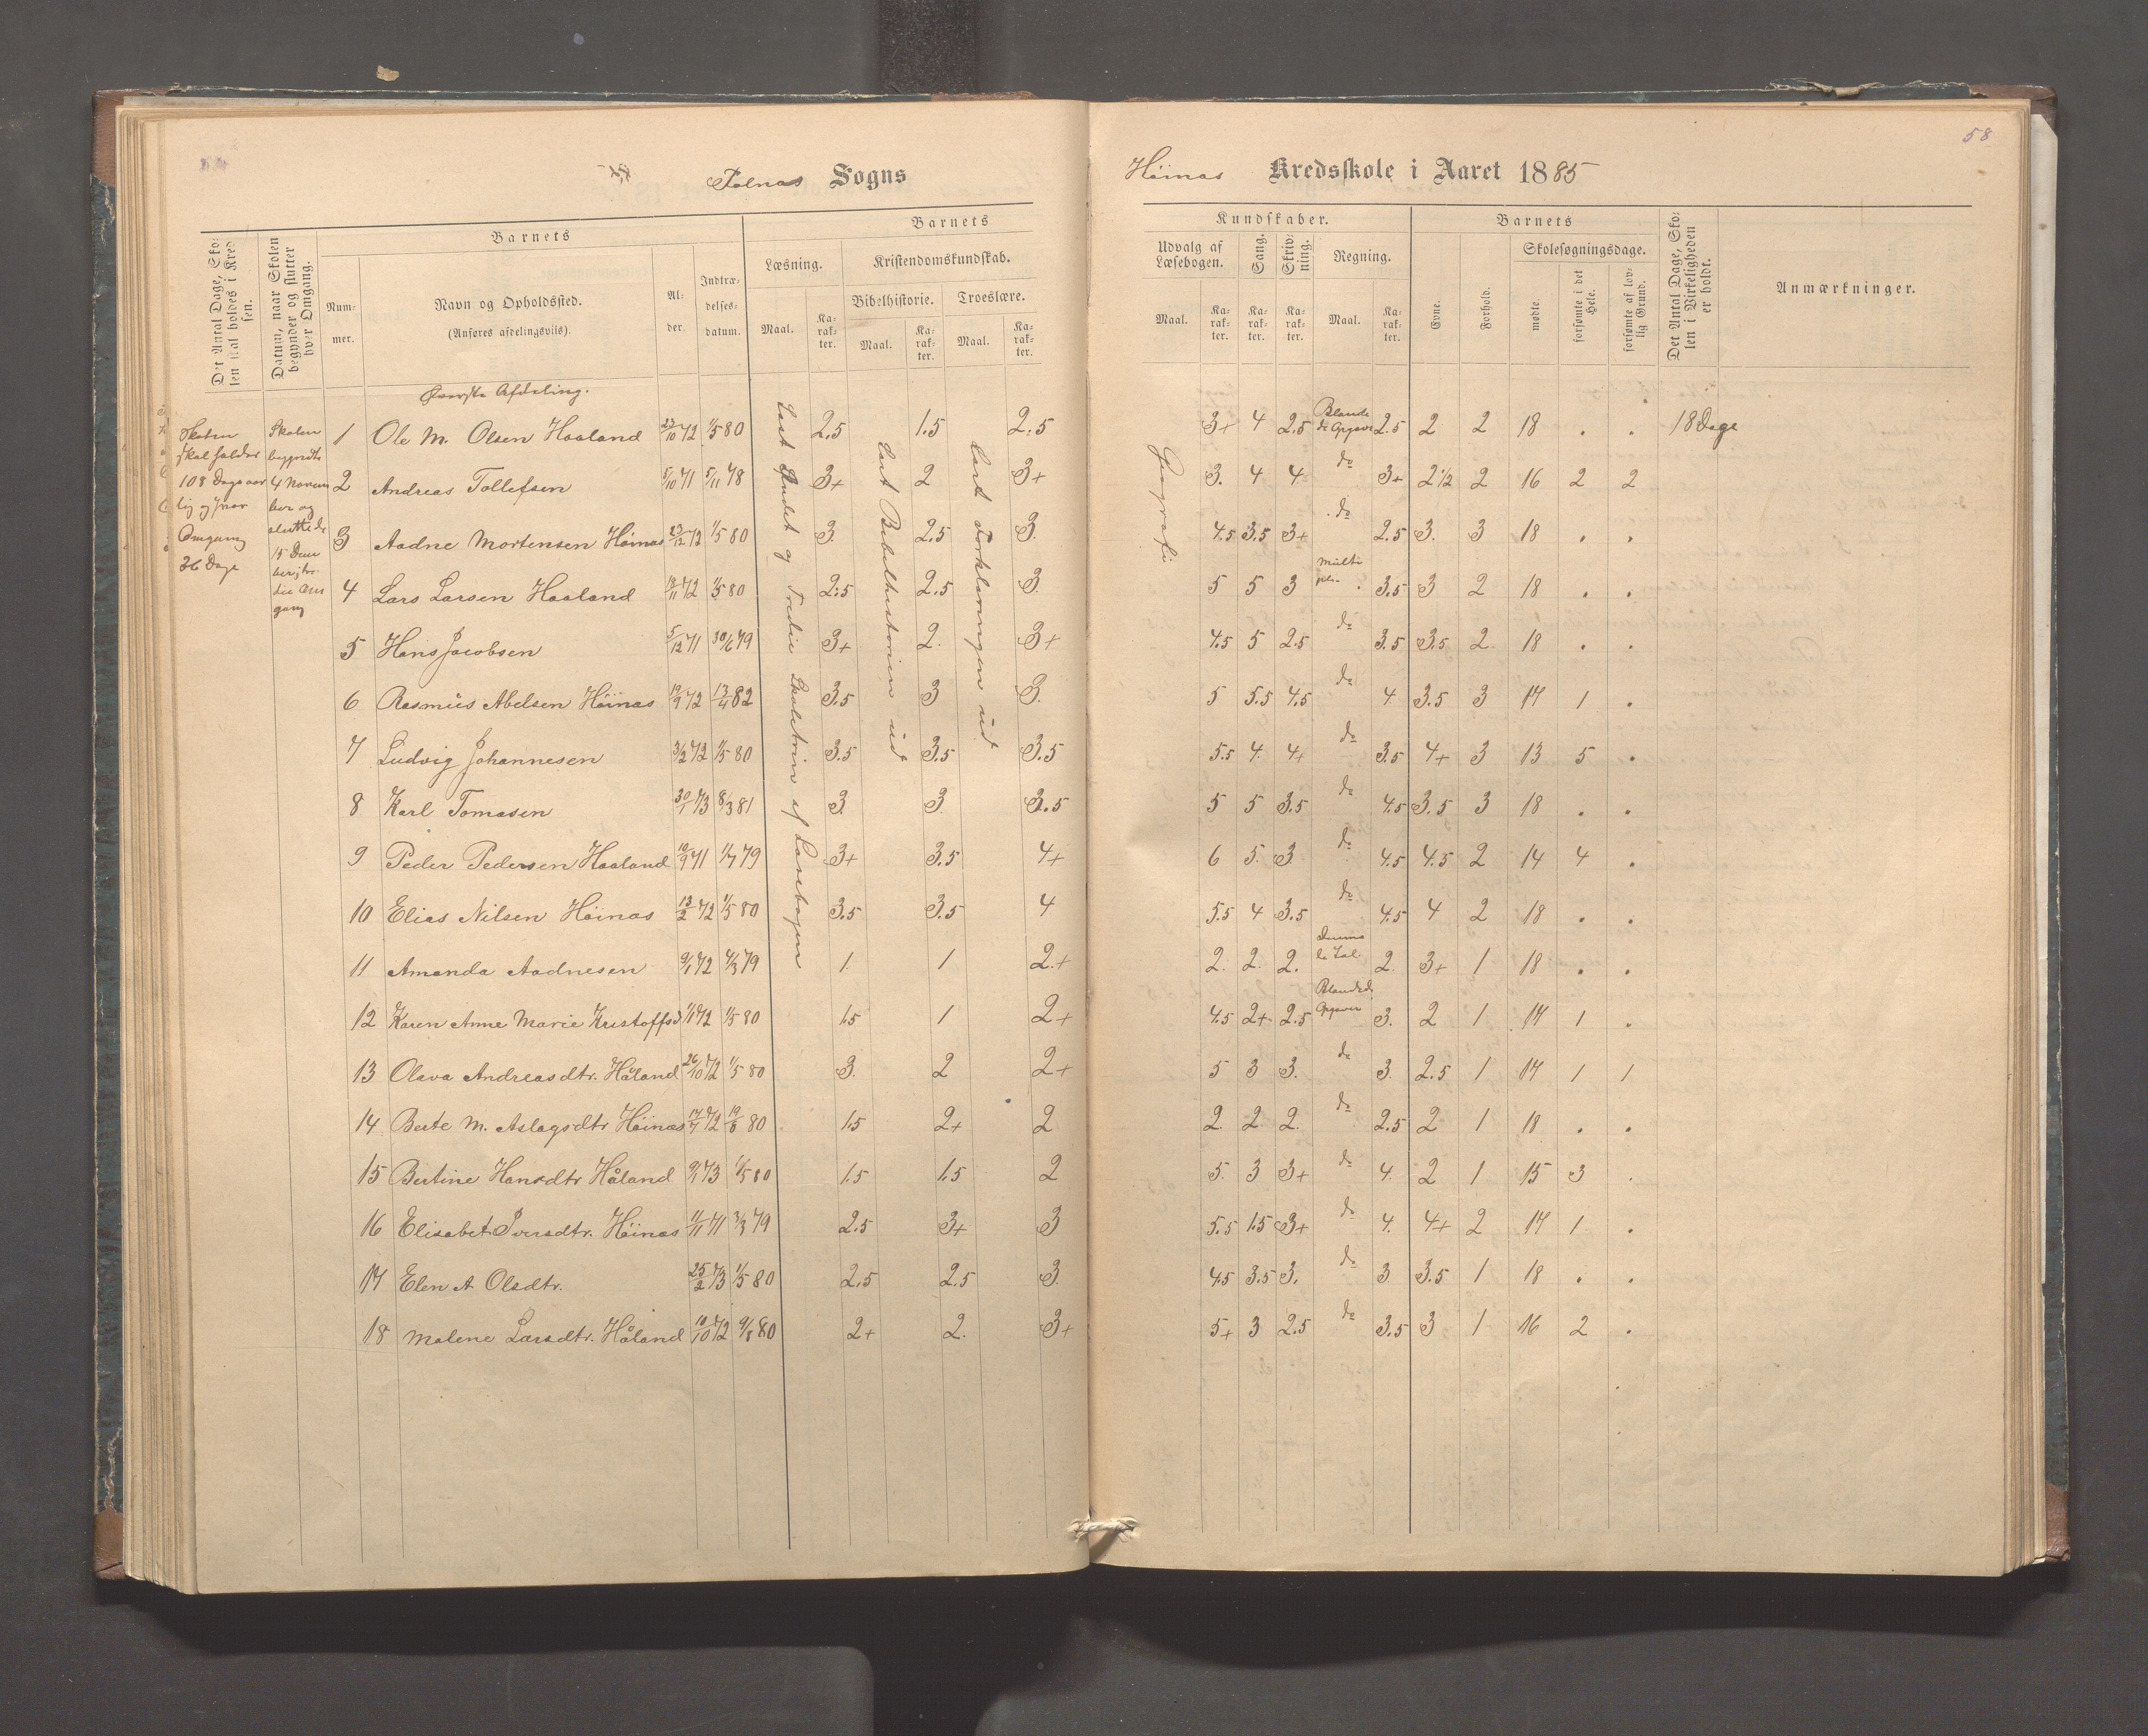 58
Sogns
Høinæs Kredsskole i Aaret 1885
Det Antal Dage, Skolen skal holdes i Kredsen.
Datum, naar Skolen begynder og slutter hver Omgang.
Barnets
Nummer.
Navn og Opholdssted.
(Anføres afdelingsviis).
Alder.
Indtrædelsesdatum.
Barnets
Læsning.
Maal.
Karakter.
Kristendomskundskab.
Bibelhistorie.
Maal.
Karakter.
Troeslære.
Maal.
Karakter.
Kundskaber.
Udvalg af Læsebogen.
Maal.
Karakter.
Sang.
Karakter.
Skrivning.
Karakter.
Regning.
Maal.
Karakter.
Barnets
Evne.
Forhold.
Skolesøgningsdage.
mødte.
forsømte i det Hele.
forsømte af lovlig Grund.
Det Antal Dage, Skolen i Virkeligheden er holdt.
Anmærkninger.
Øverste Afdeling.
Skolen
skal holdes
108 Dage aar
lig og hver
Omgang
36 Dage
Skolen
begyndte
4 Novem
ber og
sluttede
15 Decem
ber
gang
Læst Andet og Tredie Skoletrin af Læsebogen
Lært Bibelhistorien ud
Lært Forklaringen ud
Geografi
1 Ole M. Olsen Haaland 23/10 72 1/5 80 2.5 1.5 2.5 3+ 4 2.5 Blande de Opgaver 2.5 2 2 18 . . 18 Dage
2 Andreas Tollefsen 5/10 71 5/11 78 3+ 2 3+ 3. 4 4 do 3+ 2 1/2 2 16 2 2
3 Aadne Mortensen Høinæs 23/12 72 1/5 80 3. 2.5 3. 4.5 3.5 3+ do 2.5 3. 3 18 . .
4 Lars Larsen Haaland 18/11 72 1/5 80 2.5 2.5 3. 5 5 3 Multi pli. 3.5 3 2 18 . .
5 Hans Jacobsen 5/12 71 30/6 79 3+ 2. 3+ 4.5 5 2.5 do 3.5 3.5 2 18 . .
6 Rasmus Abelsen Høinæs 19/9 72 13/4 82 3.5 3 3. 5 5.5 4.5 do 4 3.5 3 17 1 .
7 Ludvig Johannesen 3/2 72 1/5 80 3.5 3.5 3.5 5.5 4 4+ do 3.5 4+ 3 13 5 .
8 Karl Tomasen 30/1 73 8/3 81 3. 3. 3.5 5 5 3.5 do 4.5 3.5 3 18 . .
9 Peder Pedersen Haaland 10/9 71 1/7 79 3+ 3.5 4+ 6 5. 3. do 4.5 4.5 2 14 4 .
10 Elias Nilsen Høinæs 13/2 72 1/5 80 3.5 3.5 4 5.5 4 3.5 do 4.5 4 2 18 . .
11 Amanda Aadnesen 9/1 72 4/3 79 1. 1 2+ 2. 2. 2. 2. 3+ 1 18 . .
12 Karen Anne Marie Kristoffsd 1/11 72 1/5 80 1.5 1 2+ 4.5 2+ 2.5 Blandede Opgaver 3. 2 1 17 1 .
13 Olava Andreasdtr. Håland 26/10 72 1/5 80 3. 2 2+ 5 3 3. do 3. 2.5 1 17 1 1
14 Berte M. Aslagsdtr Høinæs 17/4 72 19/6 80 1.5 2+ 2 2. 2 2. do 2.5 2 1 18 . .
15 Bertine Hansdtr Håland 9/1 73 1/5 80 1.5 1.5 2 5. 3 3+ do 4. 2 1 15 3 .
16 Elisabet Iversdtr. Høinæs 11/11 71 3/3 79 2.5 3+ 3 5.5 1.5 3+ do 4. 4+ 2 17 1 .
17 Elen A Olsdtr. 25/2 73 1/5 80 2.5 2.5 3. 4.5 3.5 3. do 3 3.5 1 18 . .
18 Malene Larsdtr. Håland 10/10 72 9/8 80 2+ 2. 3+ 5+ 3 2.5 do 3.5 3 1 16 2 .